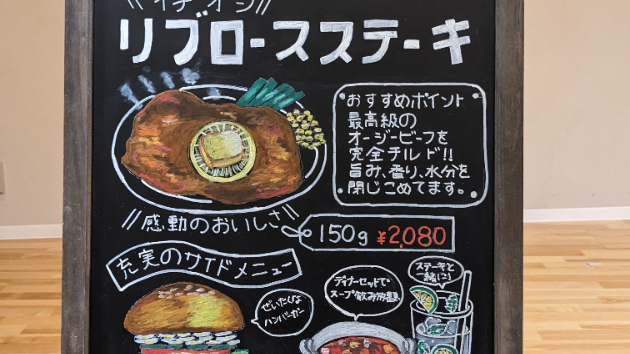 イチオシ
リブロースステーキ
おすすめポイント
最高級の
オージービーフを
完全チルド!!
旨み、香り、水分を
閉じこめてます。
感動のおいしさ
150g ¥2,080
充実のサイドメニュー
ぜいたくな
ハンバーガー
ディナーセットで
スープ飲み放題
ステーキと
一緒に!